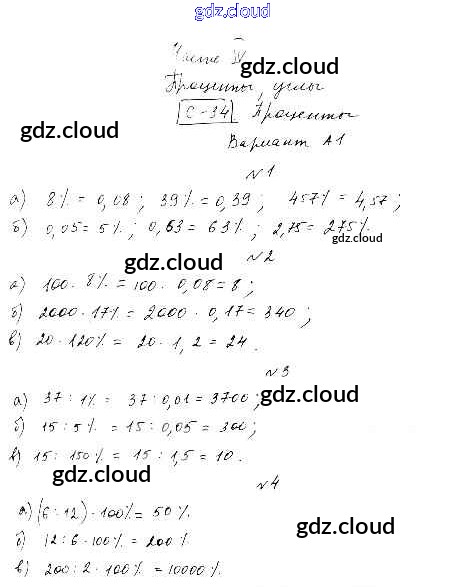 gdz.cloud
Часть IV
gdz.cloud
Проценты, углы
С-34 Проценты
gdz.cloud
Вариант А1
№1
а) 8% = 0,08; 39% = 0,39; 457% = 4,57;
б) 0,05 = 5%; 0,63 = 63%; 2,75 = 275%.
gdz.cloud
№2
gdz.cloud
а) 100 · 8% = 100 · 0,08 = 8;
б) 2000 · 17% = 2000 · 0,17 = 340;
gdz.cloud
в) 20 · 120% = 20 · 1,2 = 24.
№3
а) 37 : 1% = 37 : 0,01 = 3700;
gdz.cloud
б) 15 : 5% = 15 : 0,05 = 300;
в) 15 : 150% = 15 : 1,5 = 10.
gdz.cloud
№4
а) (6 : 12) · 100% = 50%.
gdz.cloud
б) 12 : 6 · 100% = 200%.
в) 200 : 2 · 100% = 10000%.